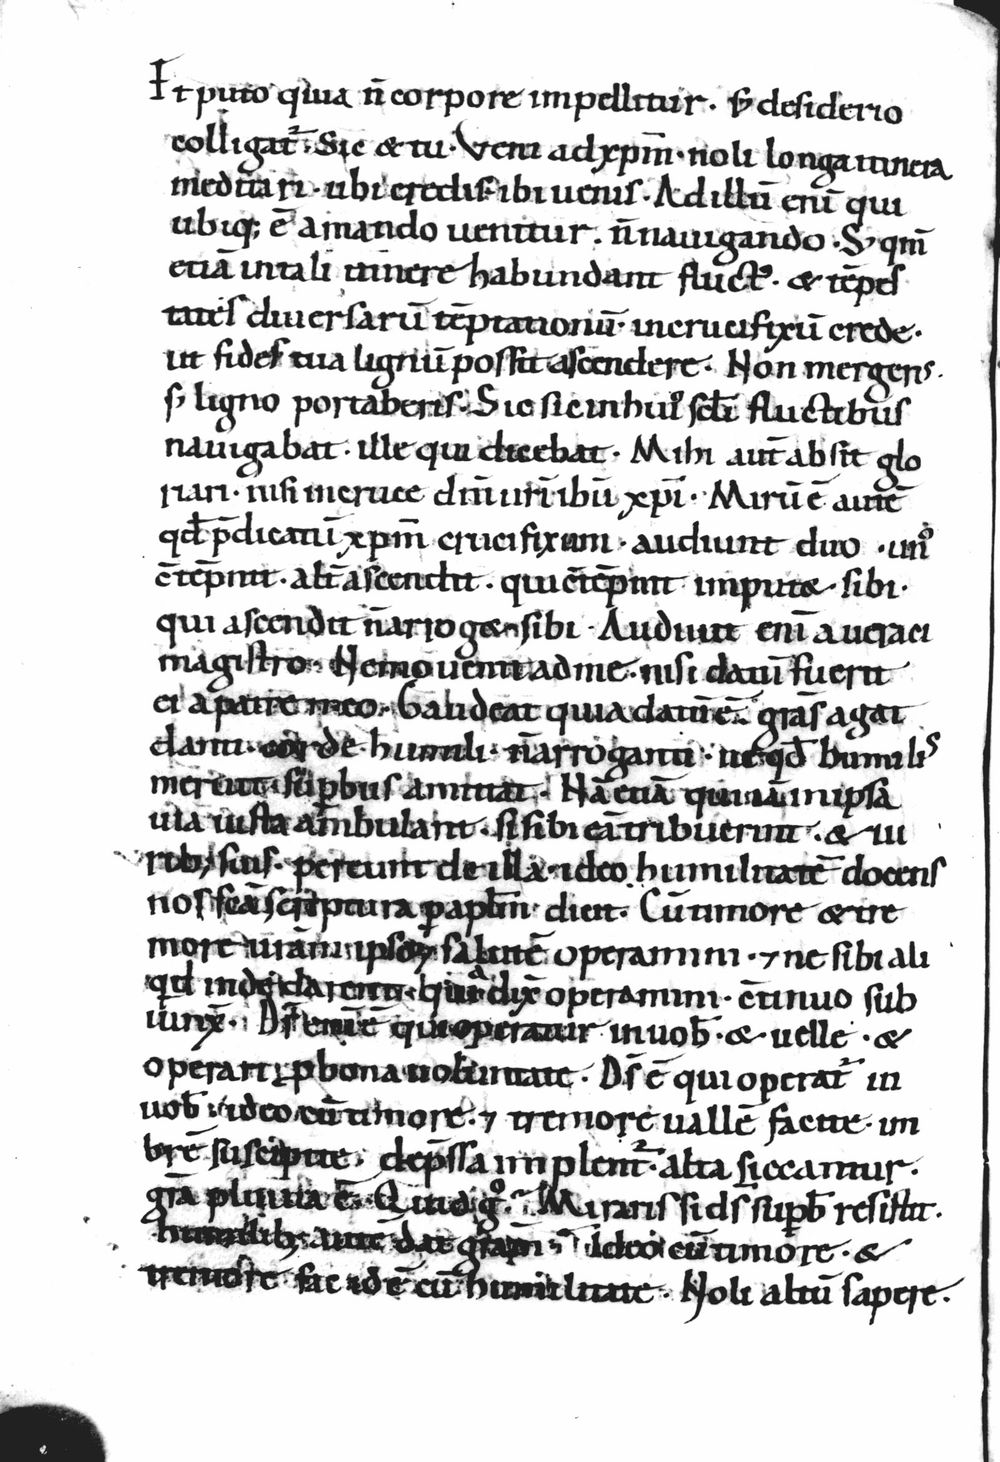 It puto quia n̄ corpore impellitur. sꝫ desiderio
colligat᷑. Sic & tu. Veni ad xp̄m. noli longa itinera
meditari. ubi credis. ibi uenis. Ad illū enī qui
ubiq; ē amando uenitur. n̄ nauigando. Sꝫ qm̄
etiā in tali itinere habundant fluct᷒. & tēpes
tates diuersarū tēptationū. in crucifixū crede.
ut fides tua lignū possit ascendere. Non mergeris.
sꝫ ligno portaberis. Sic sic in hui᷒ scl̄i fluctibus
nauigabat. ille qui dicebat. Mihi aut̄ absit glo
riari. nisi in cruce dn̄i nr̄i ihū xp̄i. Mirū ē autē
qd̄ p̄dicatū xp̄m crucifixum. audiunt duo. un᷒
ctēpnit. alt̄ ascendit. qui ctēpnit imput& sibi.
qui ascendit n̄ arrog& sibi. Audiuit enī a ueraci
magistro. Nemo uenit ad me. nisi datū fuerit
ei a patre meo. Gaudeat quia datū ē. grās agat
danti. corde humili. n̄ arroganti. ne qd̄ humilis
meruit. supbus amittat. Nā etiā qui iā in ipsa
uia iusta ambulant. si sibi eā tribuerint. & ui
rib; suis. pereunt de illa. ideo humilitatē docens
nos scā scriptura p apl̄m dicit. Cū timore & tre
more urām ipsoꝝ salutē operamini. ⁊ ne sibi ali
qd̄ inde darent. quia dix̄ operamini. ctinuo sub
iunx̄. Ds̄ enī ē qui operatur in uob̄. & uelle. &
operari p bona uoluntate. Ds̄ ē qui operat᷑ in
uob̄. ideo cū timore. ⁊ tremore uallē facite. im
brē suscipite. dep̄ssa implent᷑. alta siccantur.
grā pluuia ē. Quid g°. Miraris si ds̄ supb̄ resistit.
humilib; autē dat grām. Ideo cū timore. &
tremore fac id ē cū humilitate. Noli altū sapere.